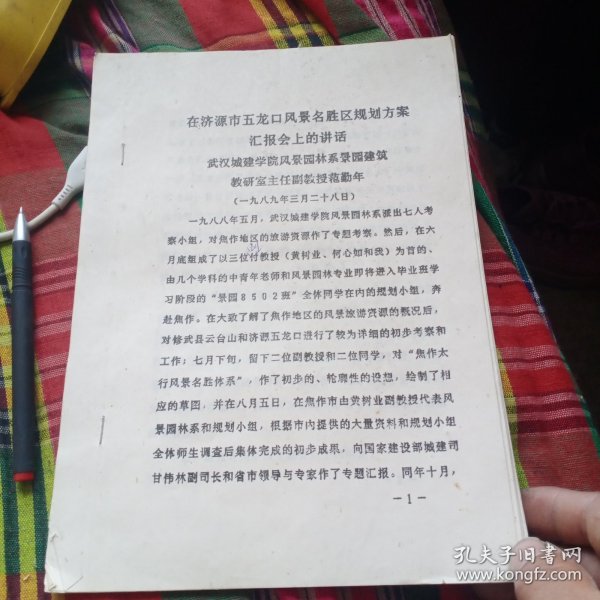 在济源市五龙口风景名胜区规划方案
汇报会上的讲话
武汉城建学院风景园林系景园建筑
教研室主任副教授范勤年
(一九八九年三月二十八日)
一九八八年五月，武汉城建学院风景园林系派出七人考
察小组，对焦作地区的旅游资源作了专题考察。然后，在六
月底组成了以三位付教授（黄树业、何心如和我）为首的、
由几个学科的中青年老师和风景园林专业即将进入毕业班学
习阶段的“景园8502班”全体同学在内的规划小组，奔
赴焦作。在大致了解了焦作地区的风景旅游资源的概况后，
对修武县云台山和济源五龙口进行了较为详细的初步考察和
工作；七月下旬，留下二位副教授和二位同学，对“焦作太
行风景名胜体系”，作了初步的、轮廓性的设想，绘制了相
应的草图，并在八月五日，在焦作市由黄树业副教授代表风
景园林系和规划小组，根据市内提供的大量资料和规划小组
全体师生调查后集体完成的初步成果，向国家建设部城建司
甘伟林副司长和省市领导与专家作了专题汇报。同年十月，
—1—
孔夫子旧书网
www.kongfz.com